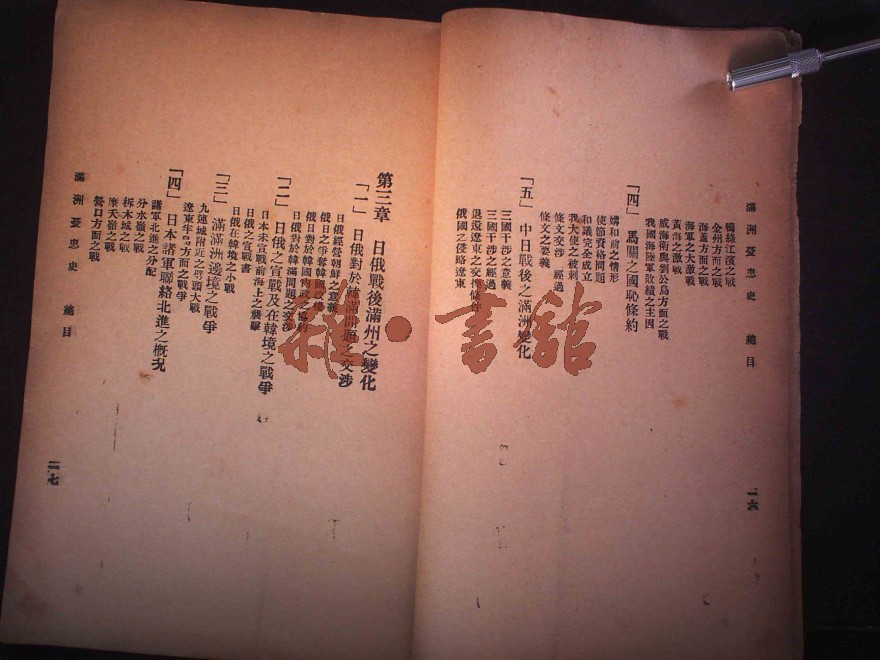 滿洲憂患史 總目
鴨綠江濱之戰
金州方面之戰
海蓋方面之戰
海軍之大激戰
黃海之激戰
威海衛與劉公島方面之戰
我國海陸軍敗績之主因
「四」 馬關之國恥條約
媾和前之情形
使節資格問題
和議完全成立
我大使之被刺
條文交涉之經過
條文之要義
「五」 中日戰後之滿洲變化
三國干涉之意義
三國干涉之經過
退還遼東之交換條件
俄國之侵略遼東
一六
第三章 日俄戰後滿州之變化
「一」 日俄對於韓滿問題之交涉
日俄經營朝鮮之意義
俄日之爭奪韓國
俄日對於韓國內政之協約
日俄對於韓滿問題之交涉
「二」 日俄之宣戰及在韓境之戰爭
日本未宣戰前海上之襲擊
日俄之宣戰書
日俄在韓境之小戰
「三」 滿滿洲邊境之戰爭
九連城附近之劈頭大戰
遼東半島方面之戰爭
「四」 日本諸軍聯絡北進之概況
諸軍北進之分配
分水嶺之戰
柝木城之戰
摩天嶺之戰
營口方面之戰
滿洲憂患史 總目
一七
雜·書館